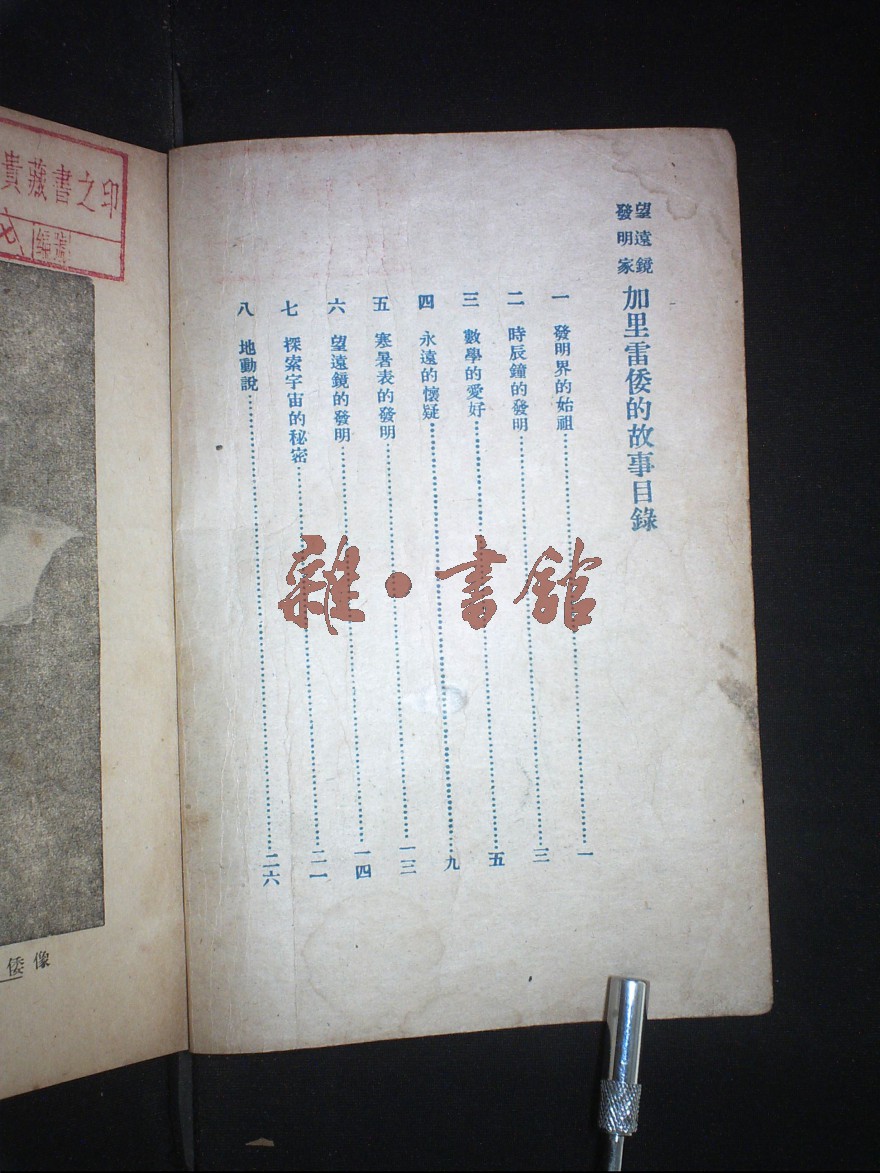 望遠鏡
發明家
加里雷倭的故事目錄
一 發明界的始祖 一
二 時辰鐘的發明 三
三 數學的愛好 五
四 永遠的懷疑 九
五 寒暑表的發明 一三
六 望遠鏡的發明 一四
七 探索宇宙的秘密 二一
八 地動說 二六
雜·書館
責藏書之印
編號
倭像